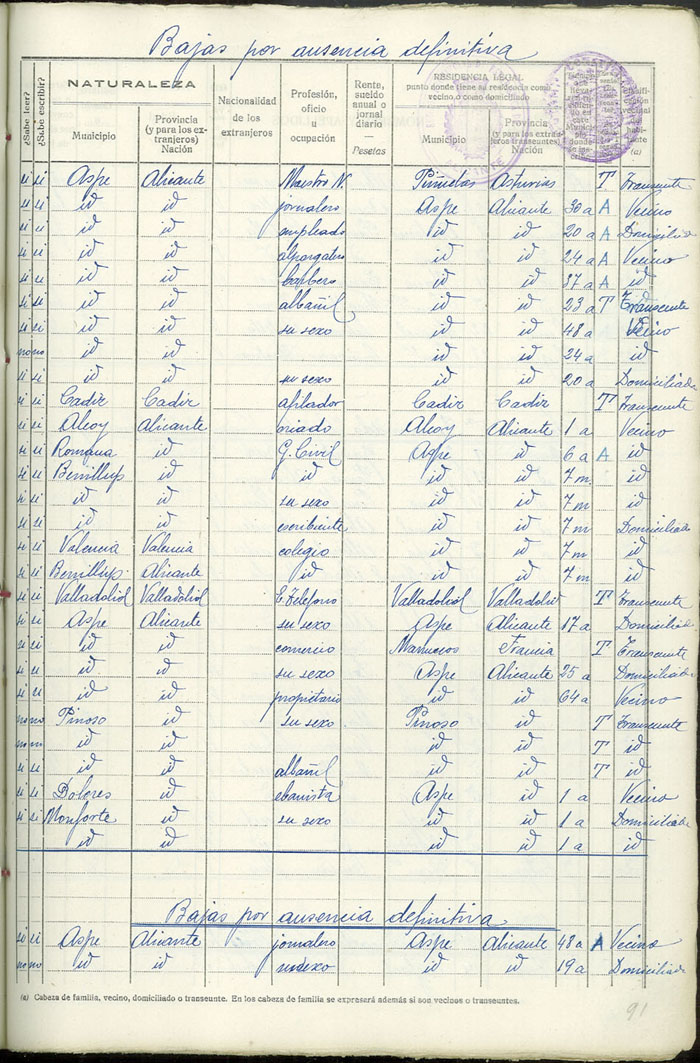 Bajas por ausencia definitiva
¿Sabe leer? ¿Sabe escribir? NATURALEZA Municipio Provincia (y para los extranjeros) Nación Nacionalidad de los extranjeros Profesión, oficio u ocupación Rente, sueldo anual o jornal diario — Pesetas RESIDENCIA LEGAL punto donde tiene su residencia como vecino o como domiciliado Municipio Provincia (y para los extranjeros transeuntes) Nación (a)
si si Aspe Alicante Maestro N. Asturias T Transeunte
si si id id jornalero Aspe Alicante 30 a A Vecino
si si id id empleado id id 20 a A Domicilia
si si id id alpargatero id id 24 a A Vecino
si si id id barbero id id 37 a A id
si si id id albañil id id 23 a T Transeunte
si si id id su sexo id id 48 a Vecino
no no id id id id 24 a id
si si id id su sexo id id 20 a Domiciliada
si si Cadiz Cadiz afilador Cadiz Cadiz T Transeunte
si si Alcoy Alicante criado Alcoy Alicante 1 a Vecino
si si Romana id G. Civil Aspe id 6 a A id
si si Benillup id id id id 7 m id
si si id id su sexo id id 7 m id
si si id id escribiente id id 7 m Domiciliado
si si Valencia Valencia colegio id id 7 m id
si si Benillup Alicante id id id 7 m id
si si Valladolid Valladolid E. Telefono Valladolid Valladolid T Transeunte
si si Aspe Alicante su sexo Aspe Alicante 17 a Domicilia
si si id id comercio Marruecos Francia T Transeunte
si si id id su sexo Aspe Alicante 25 a Domiciliada
si si id id propietario id id 64 a Vecino
no no Pinoso id su sexo Pinoso id T Transeunte
no no id id id id T id
si si id id albañil id id T id
si si Dolores id ebanista Aspe id 1 a Vecino
si si Monforte id su sexo id id 1 a Domiciliada
id id id id 1 a id
Bajas por ausencia definitiva
si si Aspe Alicante jornalero Aspe Alicante 48 a A Vecino
no no id id id id 19 a Domiciliada
(a) Cabeza de familia, vecino, domiciliado o transeunte. En los cabeza de familia se expresará además si son vecinos o transeuntes.
91